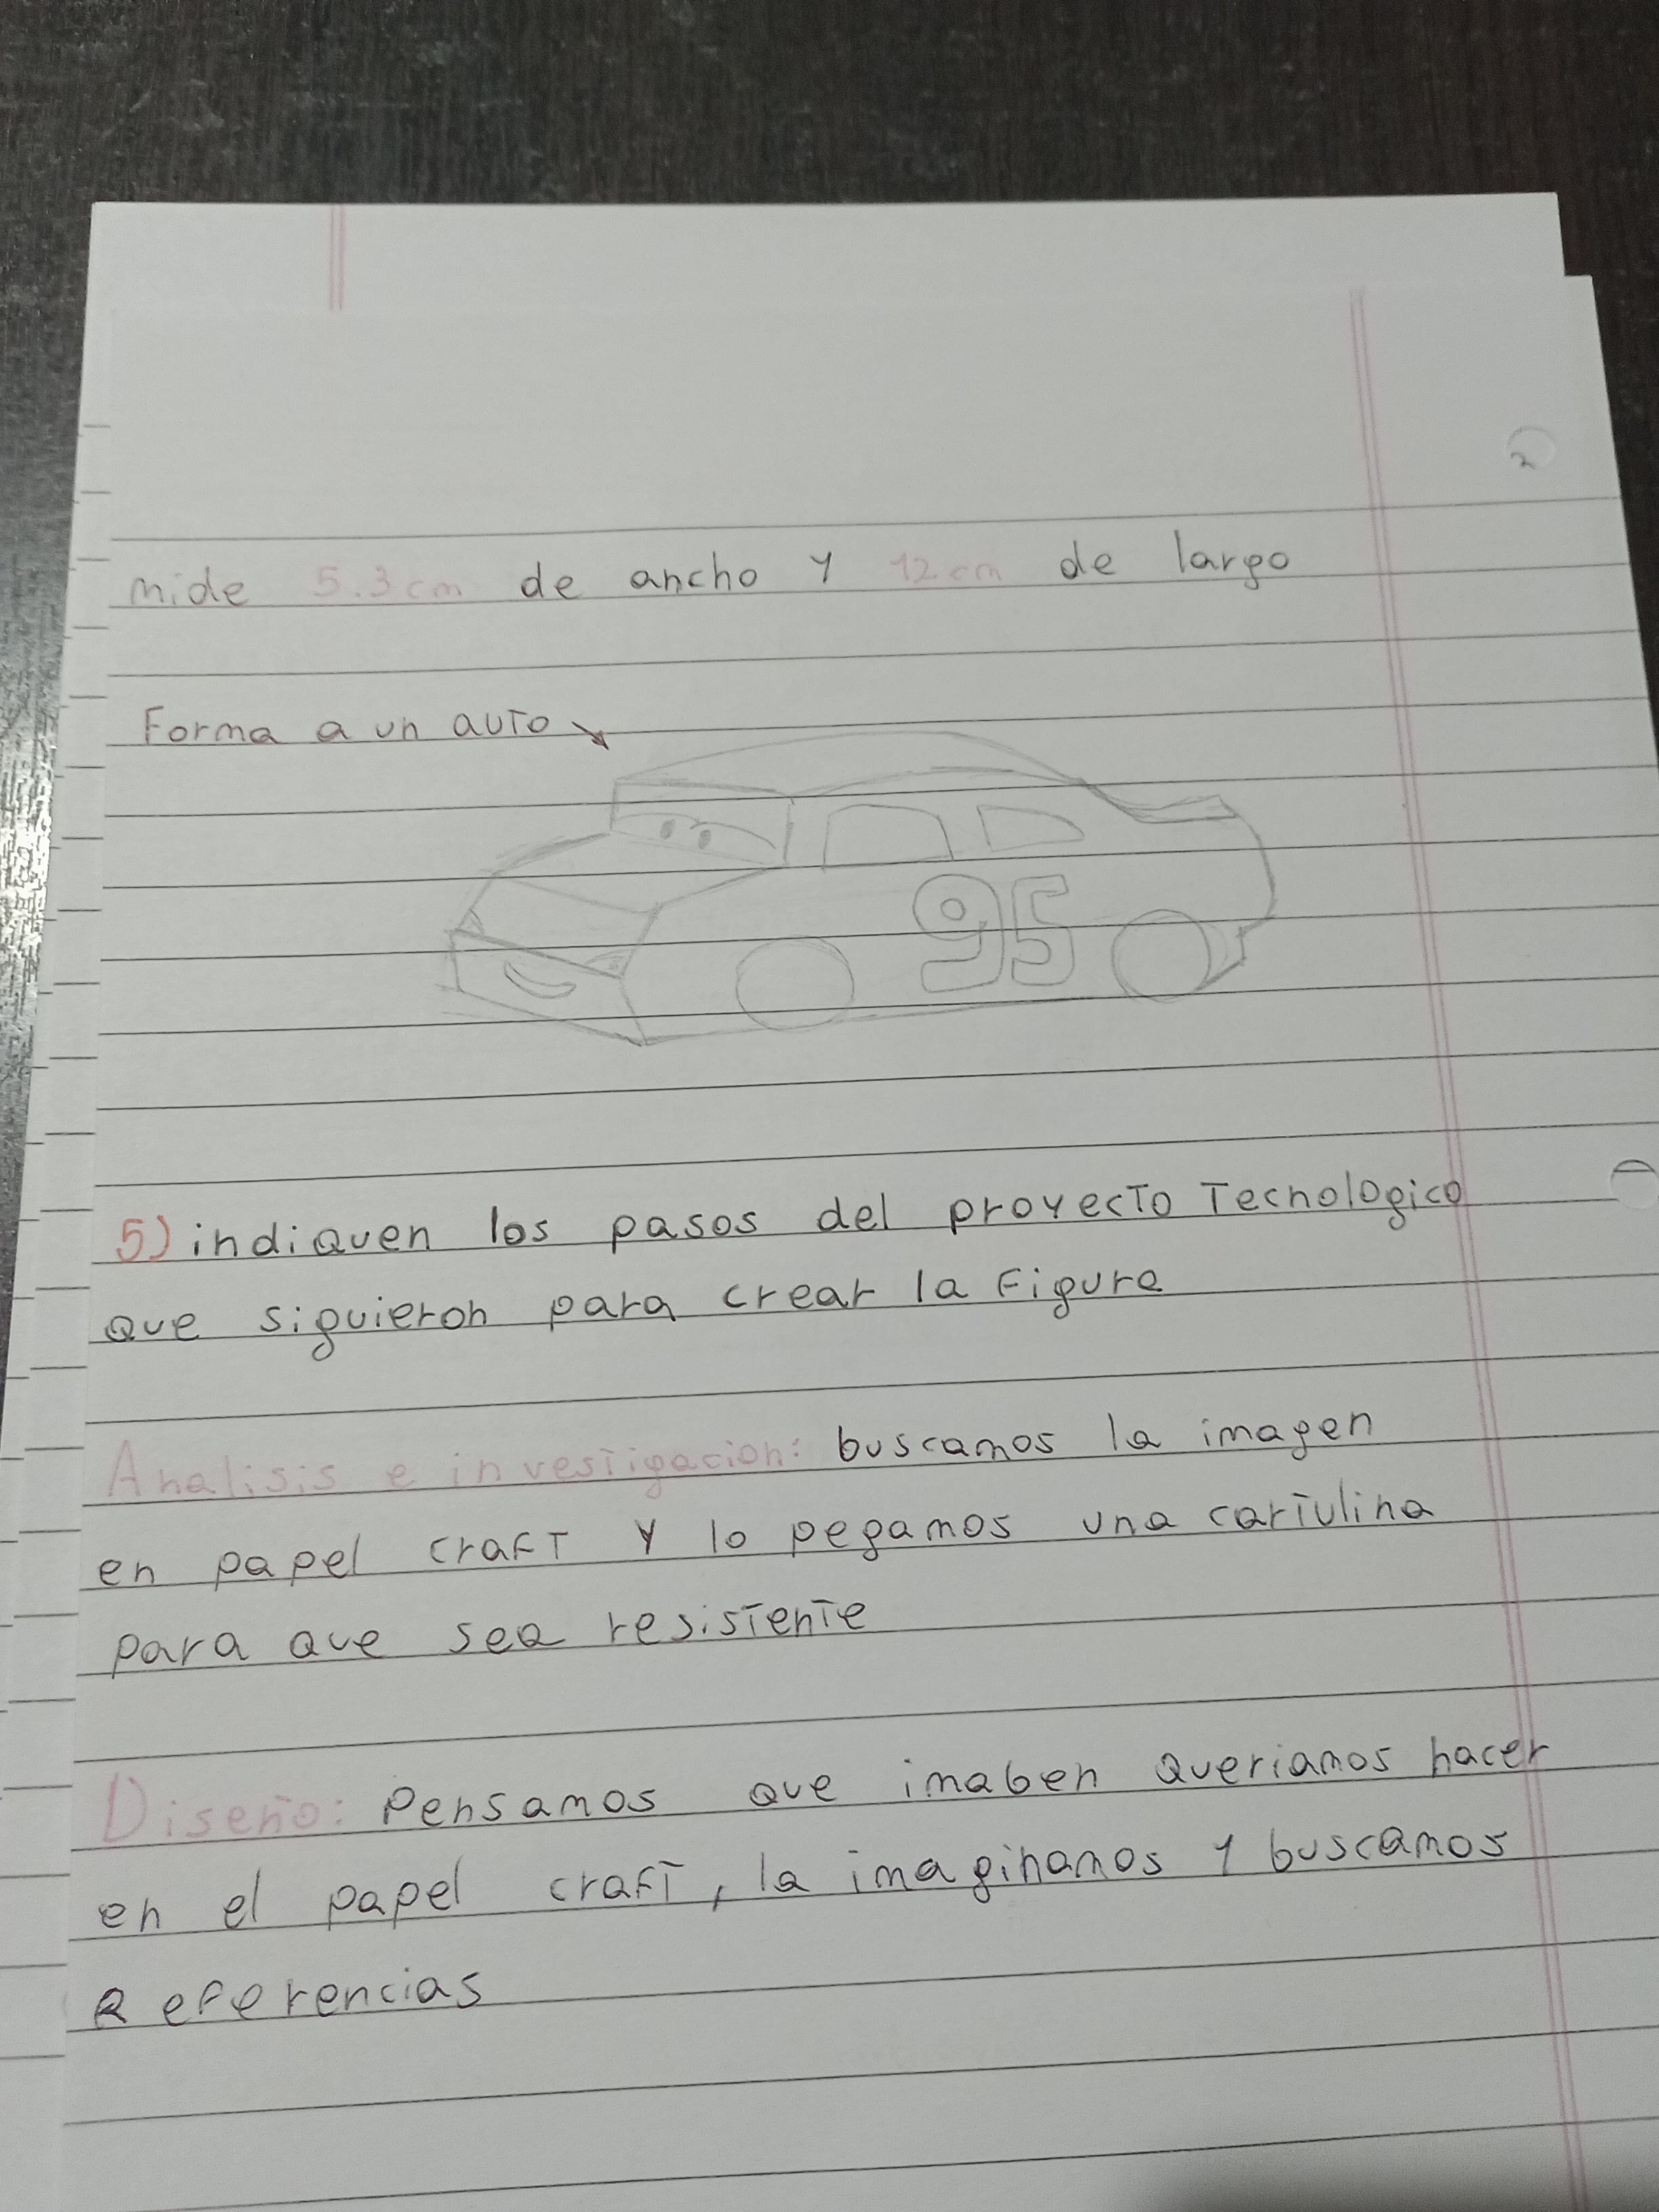 mide 5.3cm de ancho y 12cm de largo
Forma a un auto
95
5) indiquen los pasos del proyecto Tecnologico
que siguieron para crear la Figura
Analisis e investigacion: buscamos la imagen
en papel craft y lo pegamos una cartulina
para que sea resistente
Diseño: Pensamos que imaben queriamos hacer
en el papel craft, la imaginamos y buscamos
Referencias